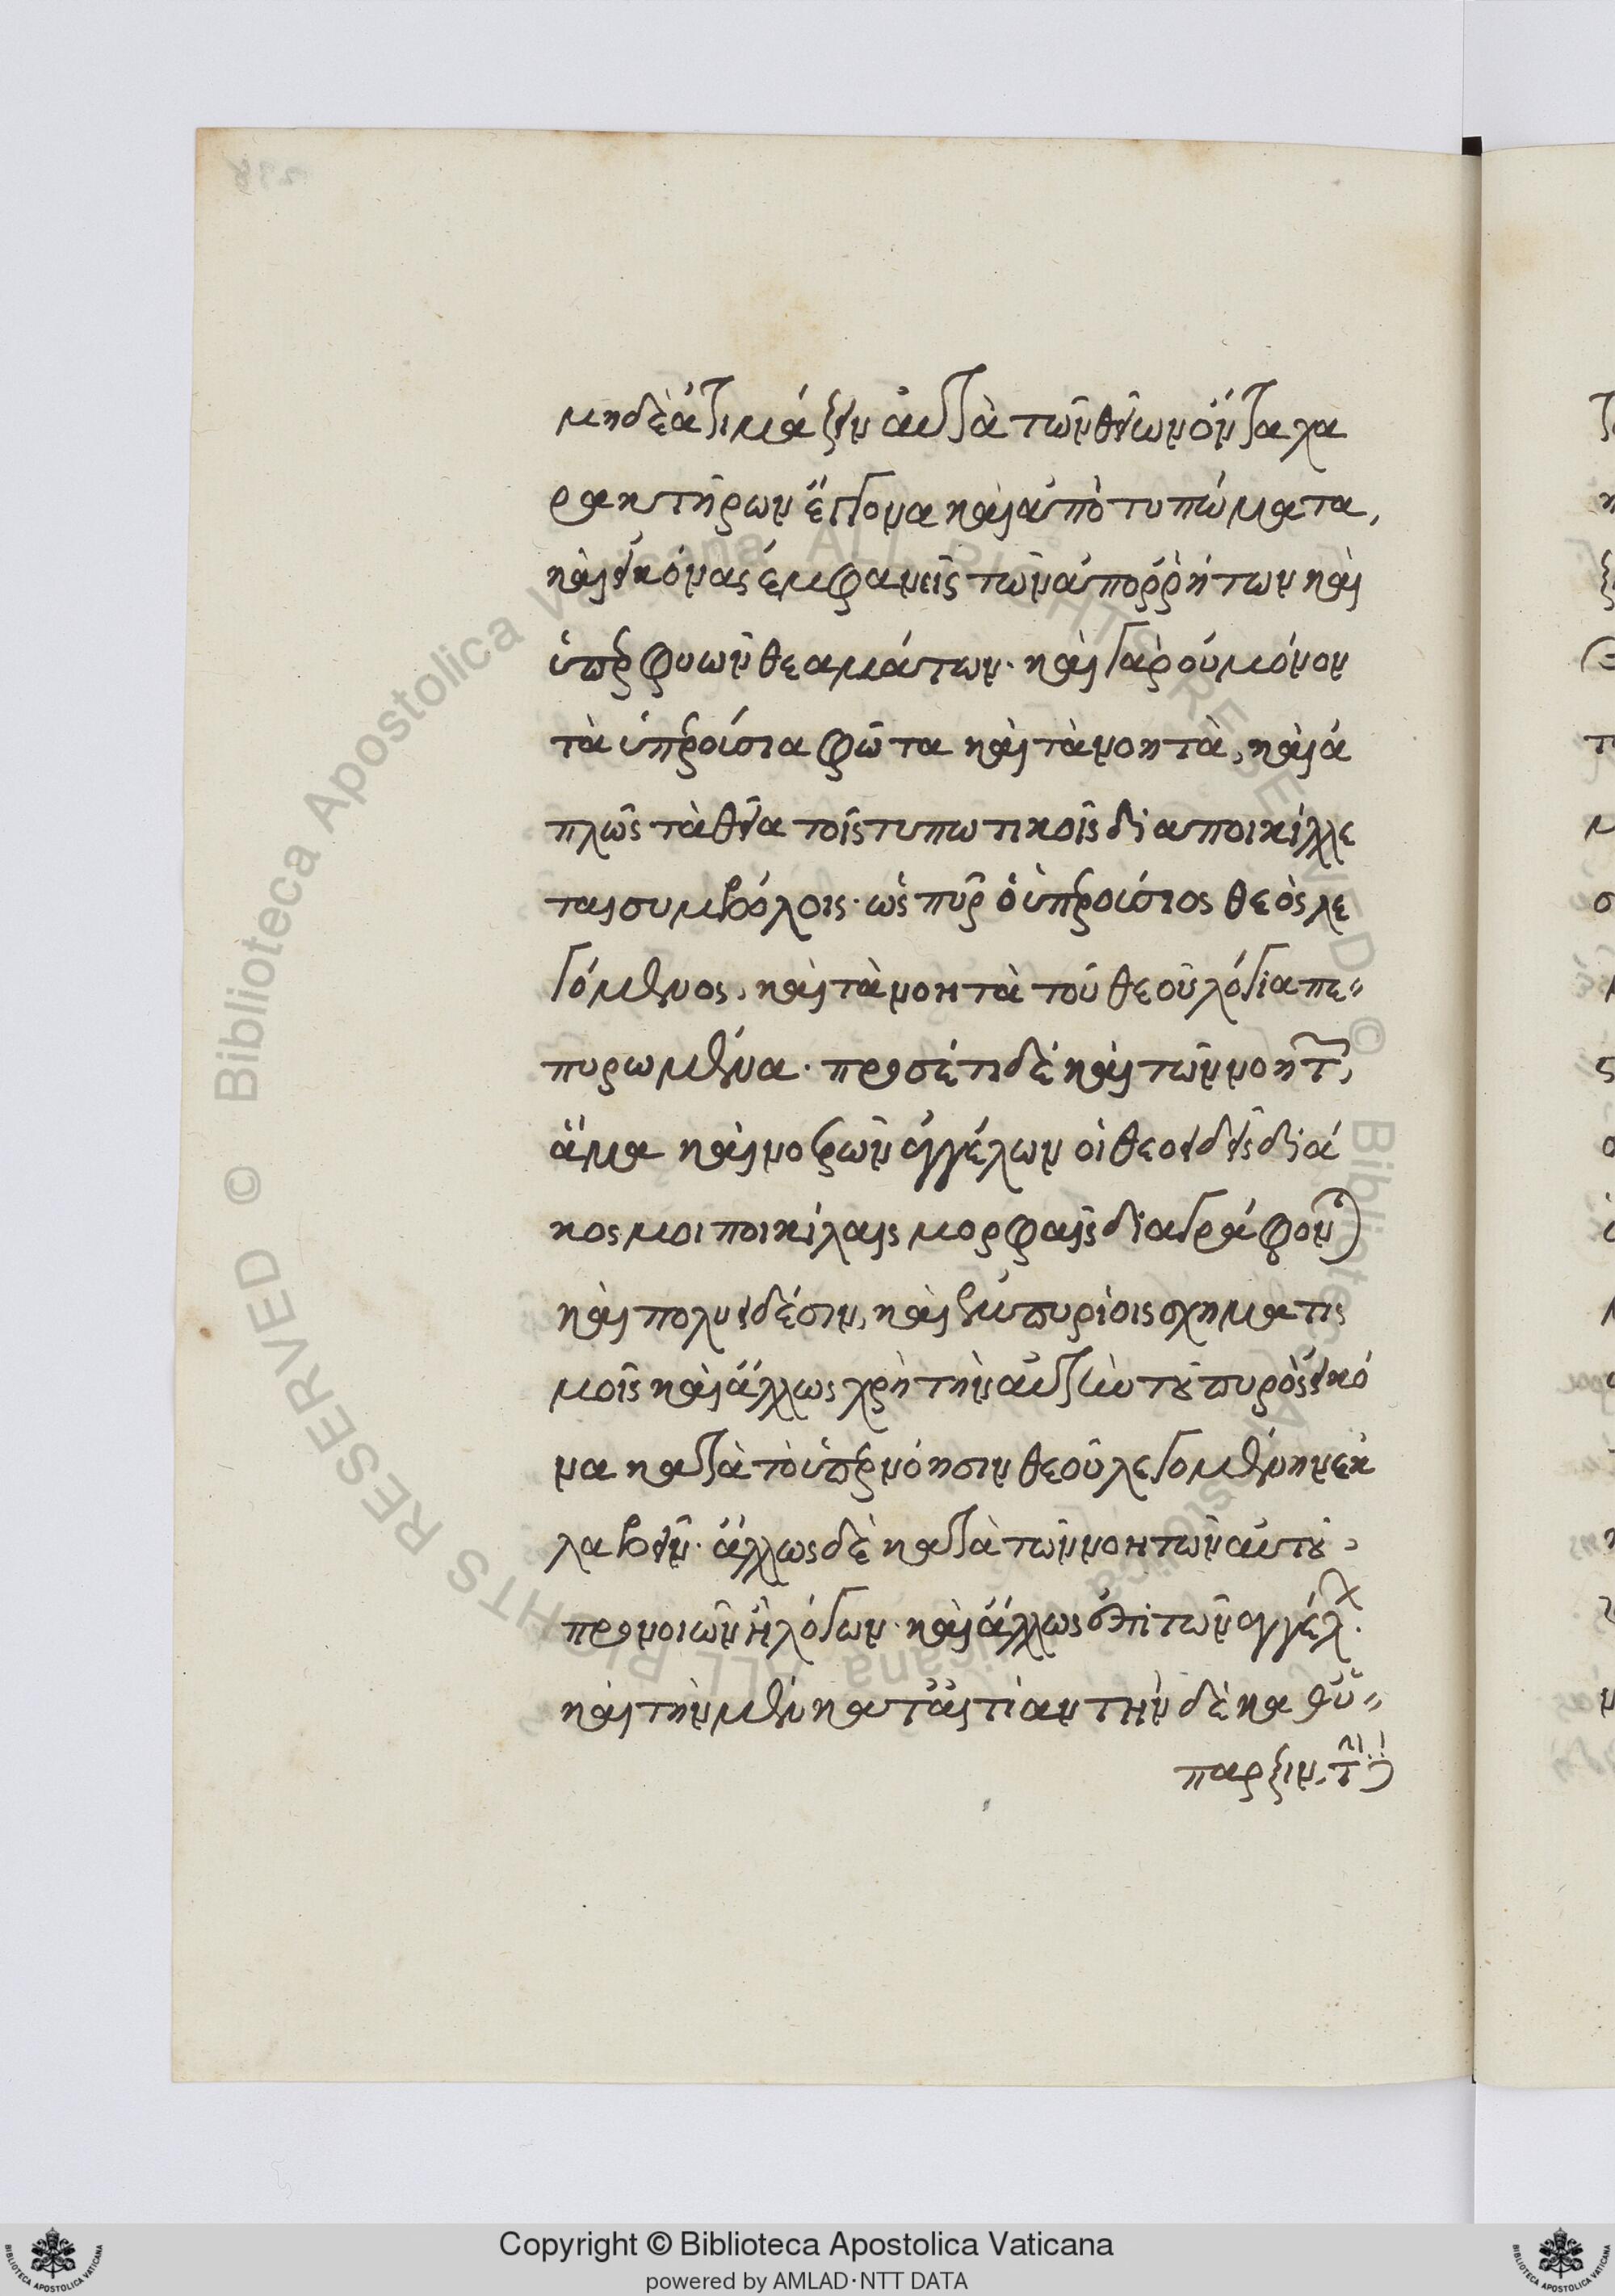 μηδὲ ἀτιμάζειν αὐτὰ τῶν θείων ὄντα χα
ρακτήρων ἔγγονα καὶ ἀποτυπώματα,
καὶ εἰκόνας ἐμφανεῖς τῶν ἀπορρήτων καὶ
ὑπερφυῶν θεαμάτων· καὶ γὰρ οὐ μόνον
τὰ ὑπερούσια φῶτα καὶ τὰ νοητὰ, καὶ ἁ
πλῶς τὰ θεῖα τοῖς τυπωτικοῖς διαποικίλλε
ται συμβόλοις· ὡς πῦρ ὁ ὑπερούσιος θεὸς λε
γόμενος, καὶ τὰ νοητὰ τοῦ θεοῦ λόγια πε
πυρωμένα· προσέτι δὲ καὶ τῶν νοητ,
ἅμα καὶ νοερῶν ἀγγέλων οἱ θεοειδεῖς διά
κοσμοι ποικίλαις μορφαῖς διαγράφον
καὶ πολυειδέσιν, καὶ ἐμπυρίοις σχηματις
μοῖς καὶ ἄλλως χρὴ τὴν αὐτὴν τοῦ πυρὸς εἰκό
να κατὰ τὸ ὑπὲρ νόησιν θεοῦ λεγομένην ἐκ
λαβεῖν· ἄλλως δὲ κατὰ τῶν νοητῶν αὐτοῦ
προνοιῶν ἢ λόγων· καὶ ἄλλως ἐπὶ τῶν ἀγγέλ.
καὶ τὴν μὲν κατ' αἰτίαν τὴν δὲ καθ' ὕ
παρξιν, τ
Copyright © Biblioteca Apostolica Vaticana
powered by AMLAD·NTT DATA